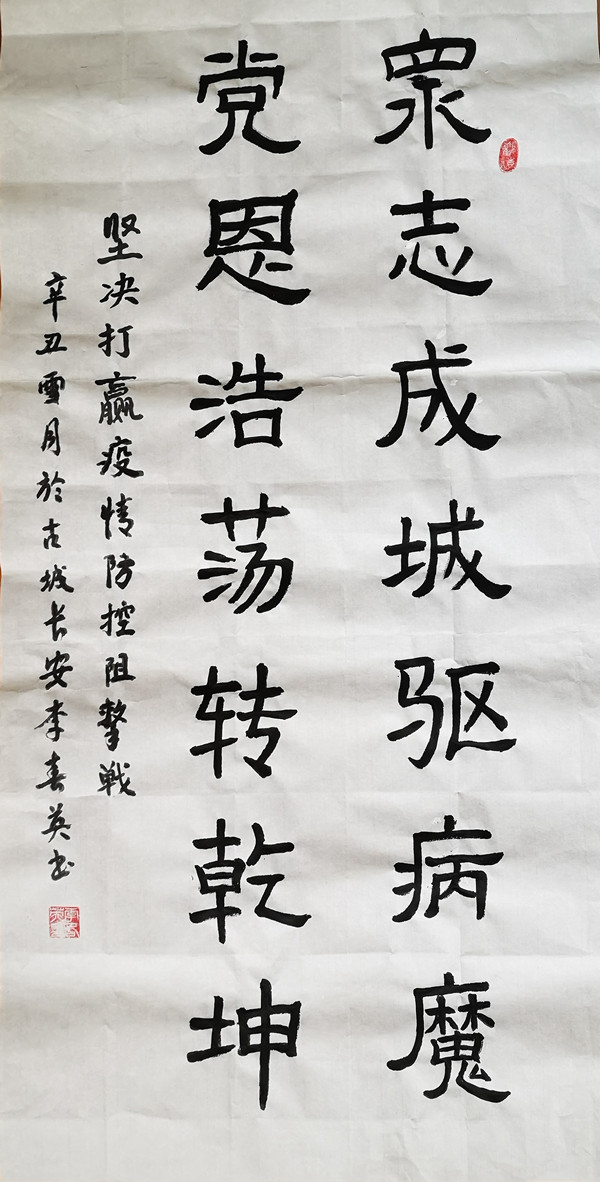 眾志成城驱病魔
党恩浩荡转乾坤
坚决打赢疫情防控阻擊戦
辛丑雪月於古城长安李春英书